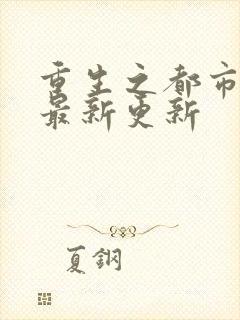 重生之都市
最新更新
夏鋼